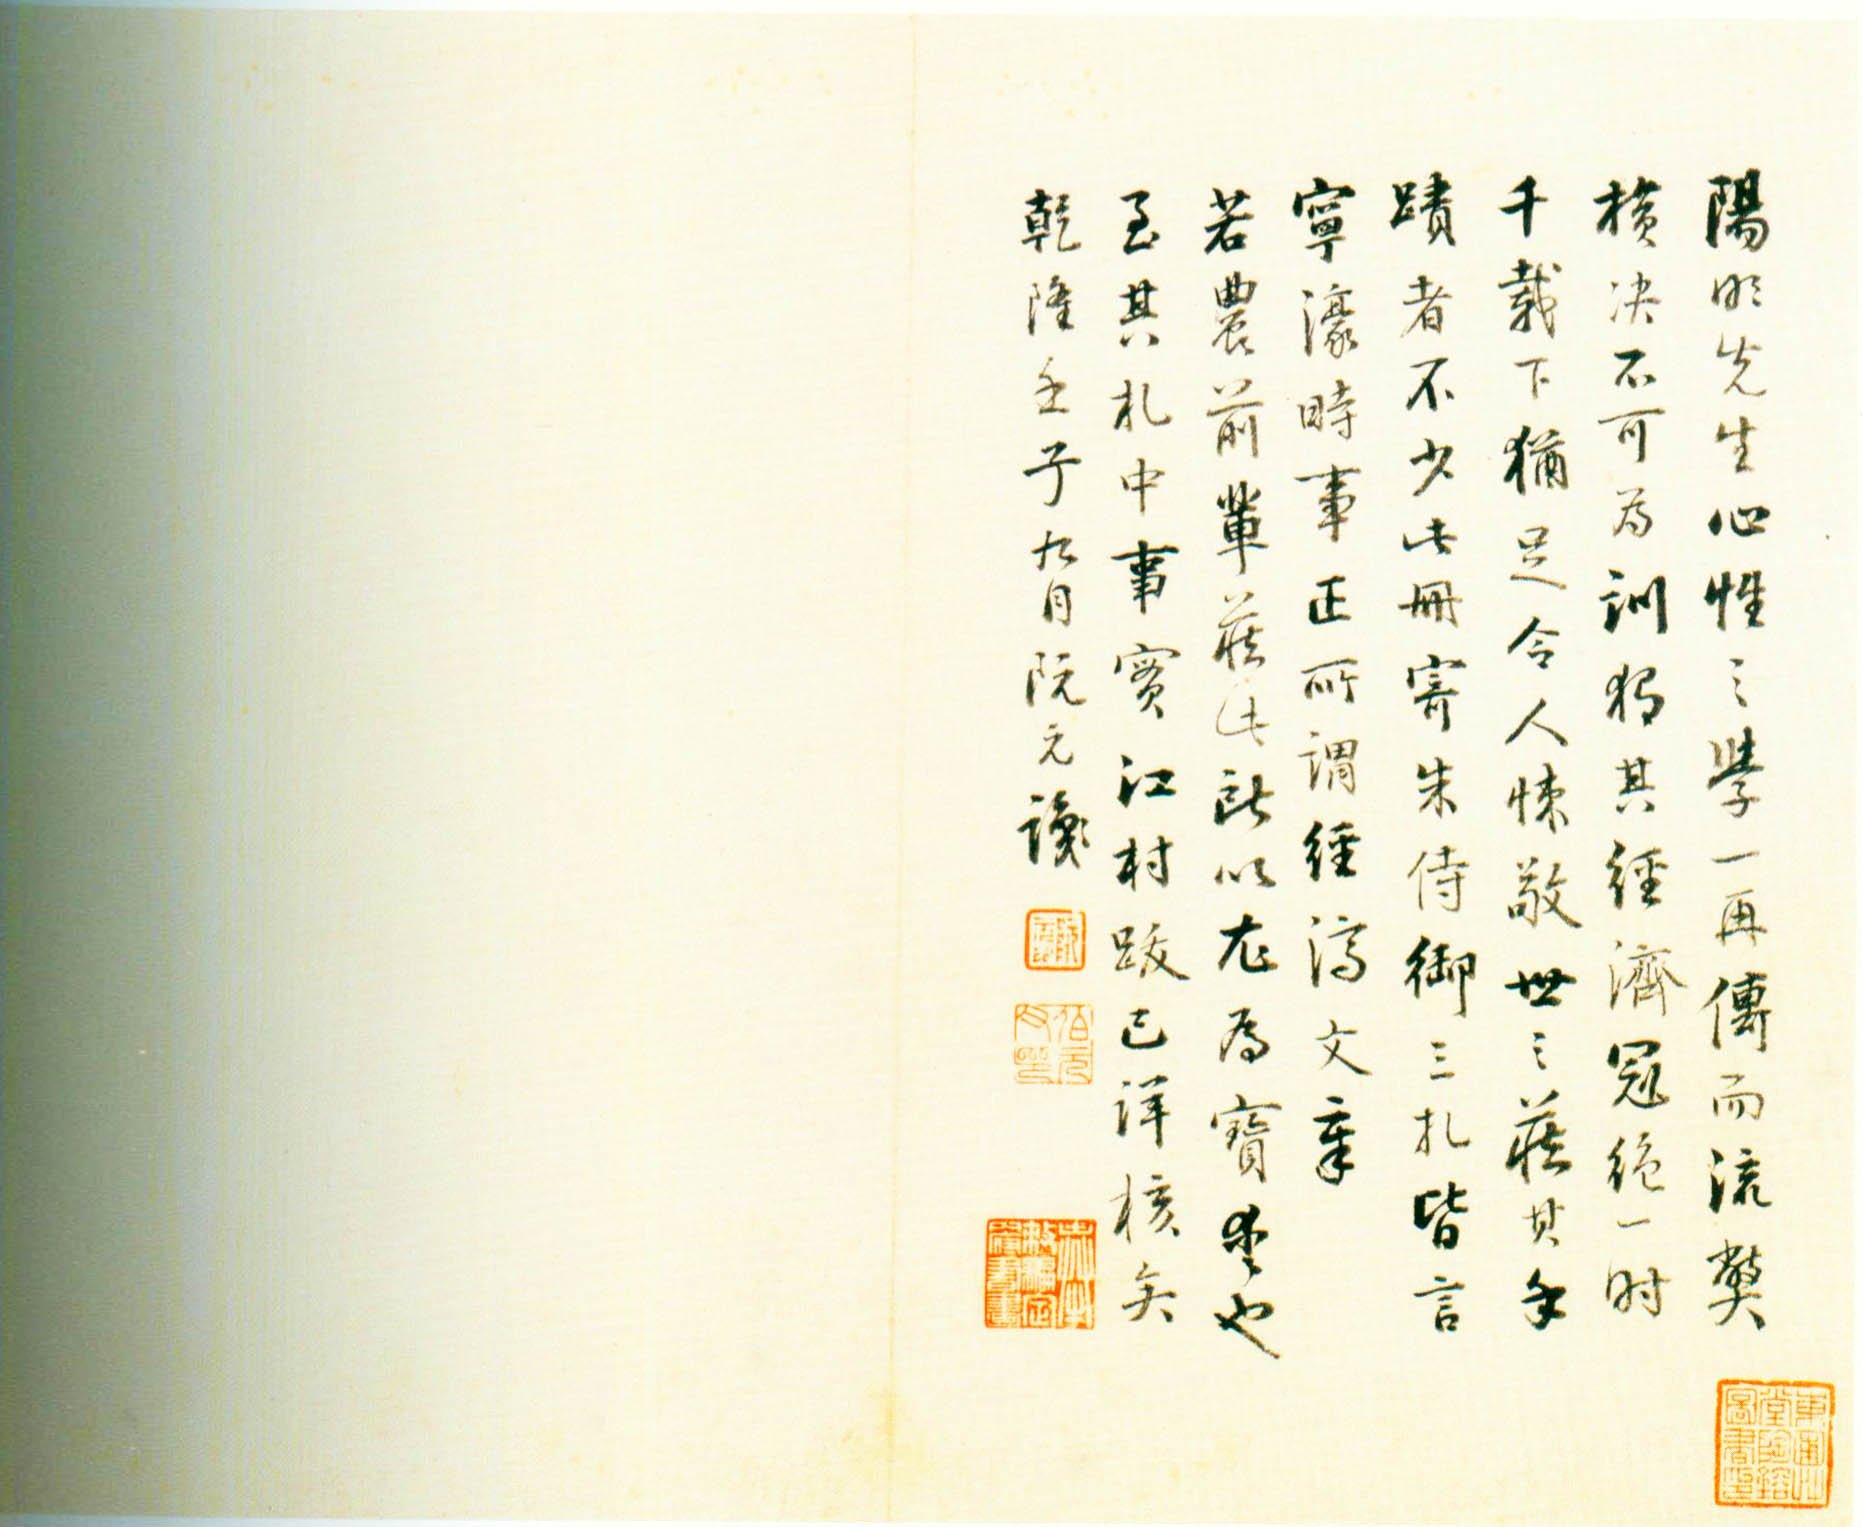 陽明先生心性之學一再傳而流弊
横決不可為訓獨其經濟冠絕一時
千載下猶足令人悚敬世之藏其手
蹟者不少此冊寄朱侍御三札皆言
寧濠時事正所謂經濟文章
若農前輩藏此所以尤為寶愛也
至其札中事實江村跋已詳核矣
乾隆壬子九月阮元識